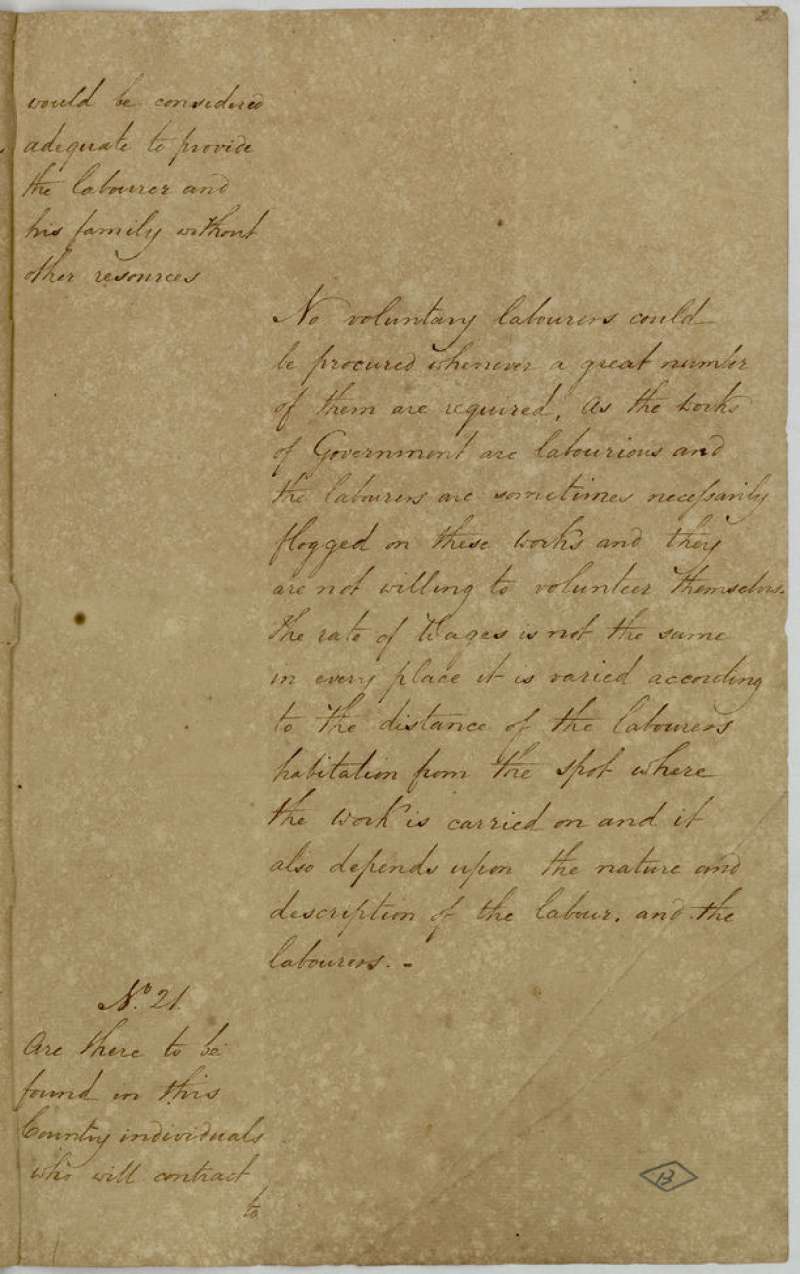 would be considered
adequate to provide
the labourer and
his family without
other resources
No voluntary labourers could
be procured whenever a great number
of them are required, As the works
of Government are labourious and
the labourers are sometimes necessarily
flogged on these works and they
are not willing to volunteer themselves.
The rate of Wages is not the same
in every place it is varied according
to the distance of the labourers
habitation from the spot where
the work is carried on and it
also depends upon the nature and
description of the labour. and the
labourers. -
No. 21.
Are there to be
found in this
Country individuals
who will contract
to
13